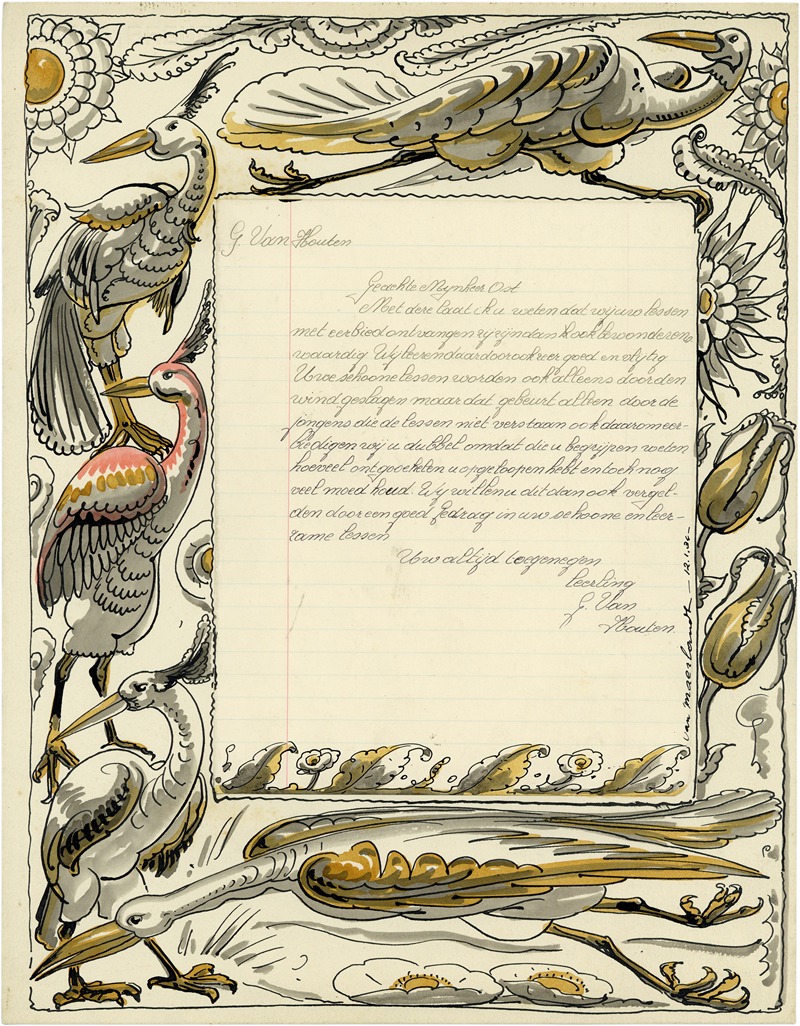 G. Van Houten
Geachte Mynheer Ost
Met dere laat ik u weten dat wij uw lessen
met eerbied ontvangen zij zijn dank ook bewonderens
waardig Wij leeren daardoor ook zeer goed en vlijtig
Uwe schoone lessen worden ook alleens door den
wind geslagen maar dat gebeurt alleen door de
jongens die de lessen niet verstaan ook daarom eer-
biedigen wij u dubbel omdat die u begrijpen weten
hoeveel ontgoochelen u opgeloopen hebt en toch nog
veel moed houd. Wij willen u dit dan ook vergel-
den door een goed gedrag in uw schoone en leer-
zame lessen
Uw altijd toegenegen
leerling
G. Van
Houten.
van maerlandt — 12.1.36 —